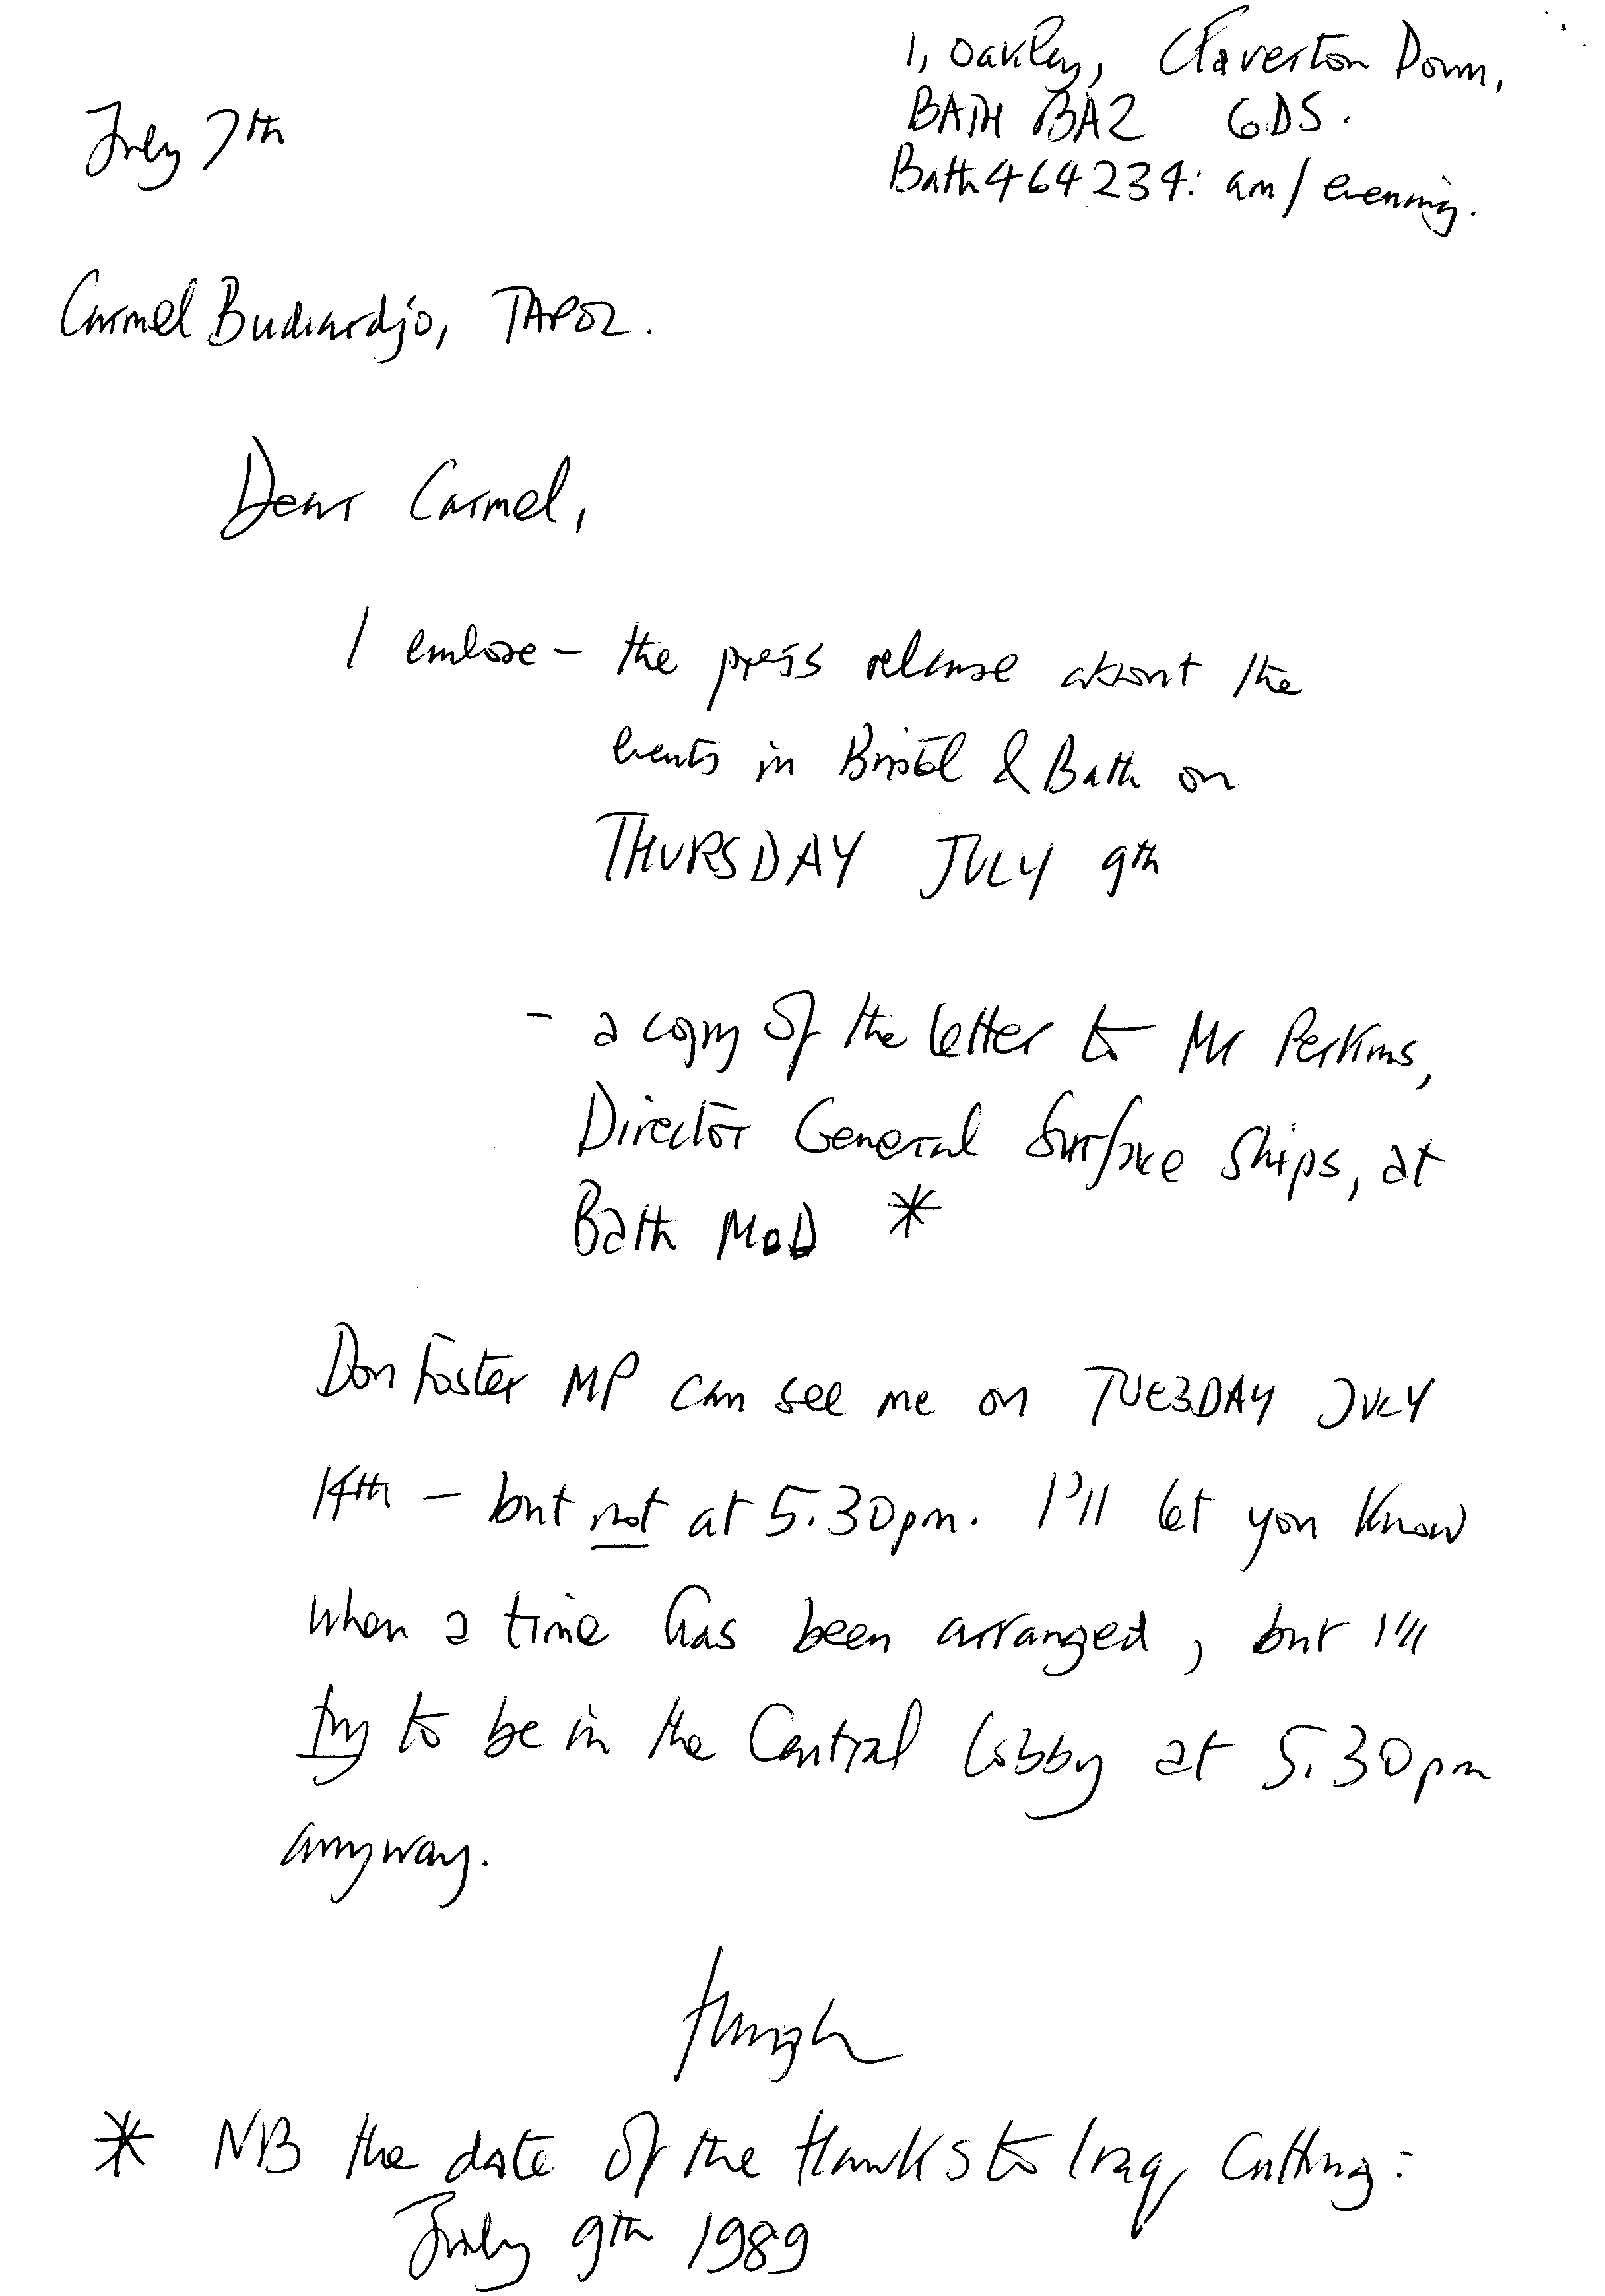 1, Oakley, Claverton Down,
BATH BA2 6DS.
Bath 464234: am/evening.
July 7th
Carmel Budiardjo, TAPOL.
Dear Carmel,
I enclose – the press release about the
events in Bristol & Bath on
THURSDAY JULY 9th
– a copy of the letter to Mr Perkins,
Director General Surface Ships, at
Bath MoD *
Don Foster MP can see me on TUESDAY JULY
14th – but not at 5.30pm. I'll let you know
when a time has been arranged, but I'll
try to be in the Central Lobby at 5.30pm
anyway.
Hugh
* NB the date of the Hawks to Iraq cutting:
July 9th 1989